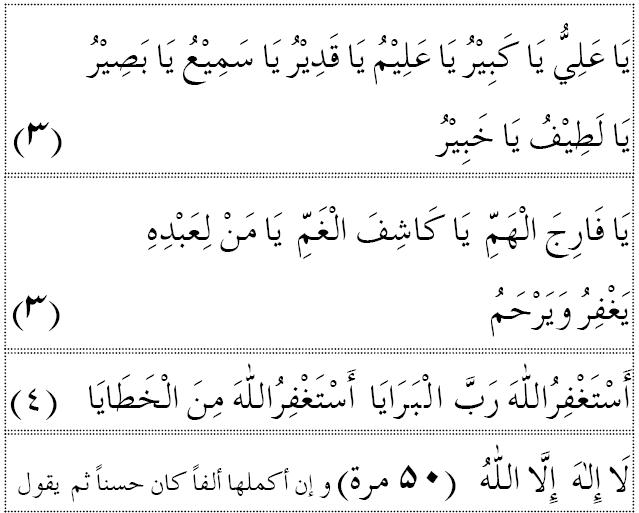 يَا عَلِيُّ يَا كَبِيْرُ يَا عَلِيْمُ يَا قَدِيْرُ يَا سَمِيْعُ يَا بَصِيْرُ
يَا لَطِيْفُ يَا خَبِيْرُ (٣)
يَا فَارِجَ الْهَمِّ يَا كَاشِفَ الْغَمِّ يَا مَنْ لِعَبْدِهِ
يَغْفِرُ وَيَرْحَمُ (٣)
أَسْتَغْفِرُ اللهَ رَبَّ الْبَرَايَا أَسْتَغْفِرُ اللهَ مِنَ الْخَطَايَا (٤)
لَا إِلٰهَ إِلَّا اللهُ (٥٠ مرة) و إن أكملها ألفاً كان حسناً ثم يقول